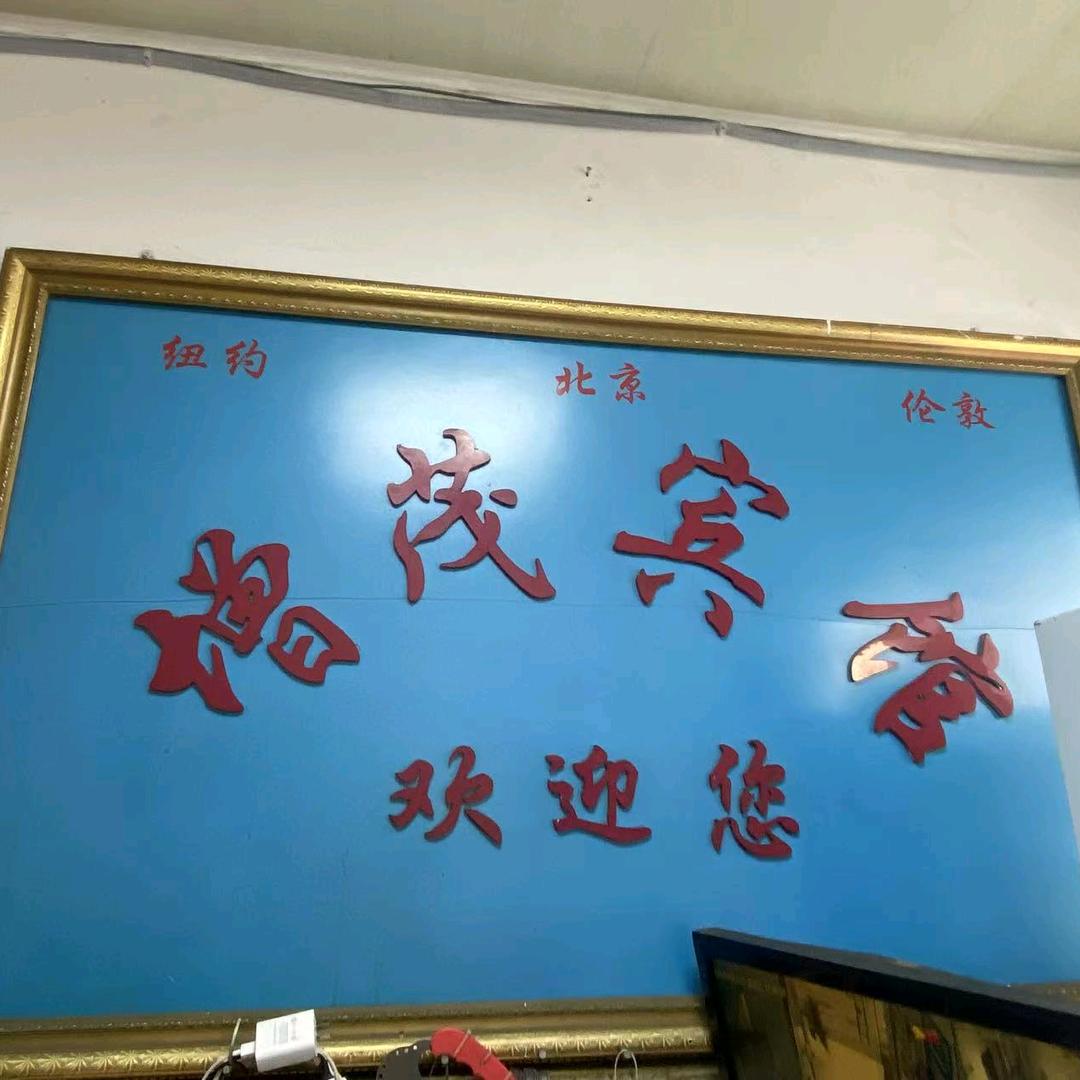 纽约 北京 伦敦
增茂宾馆
欢迎您